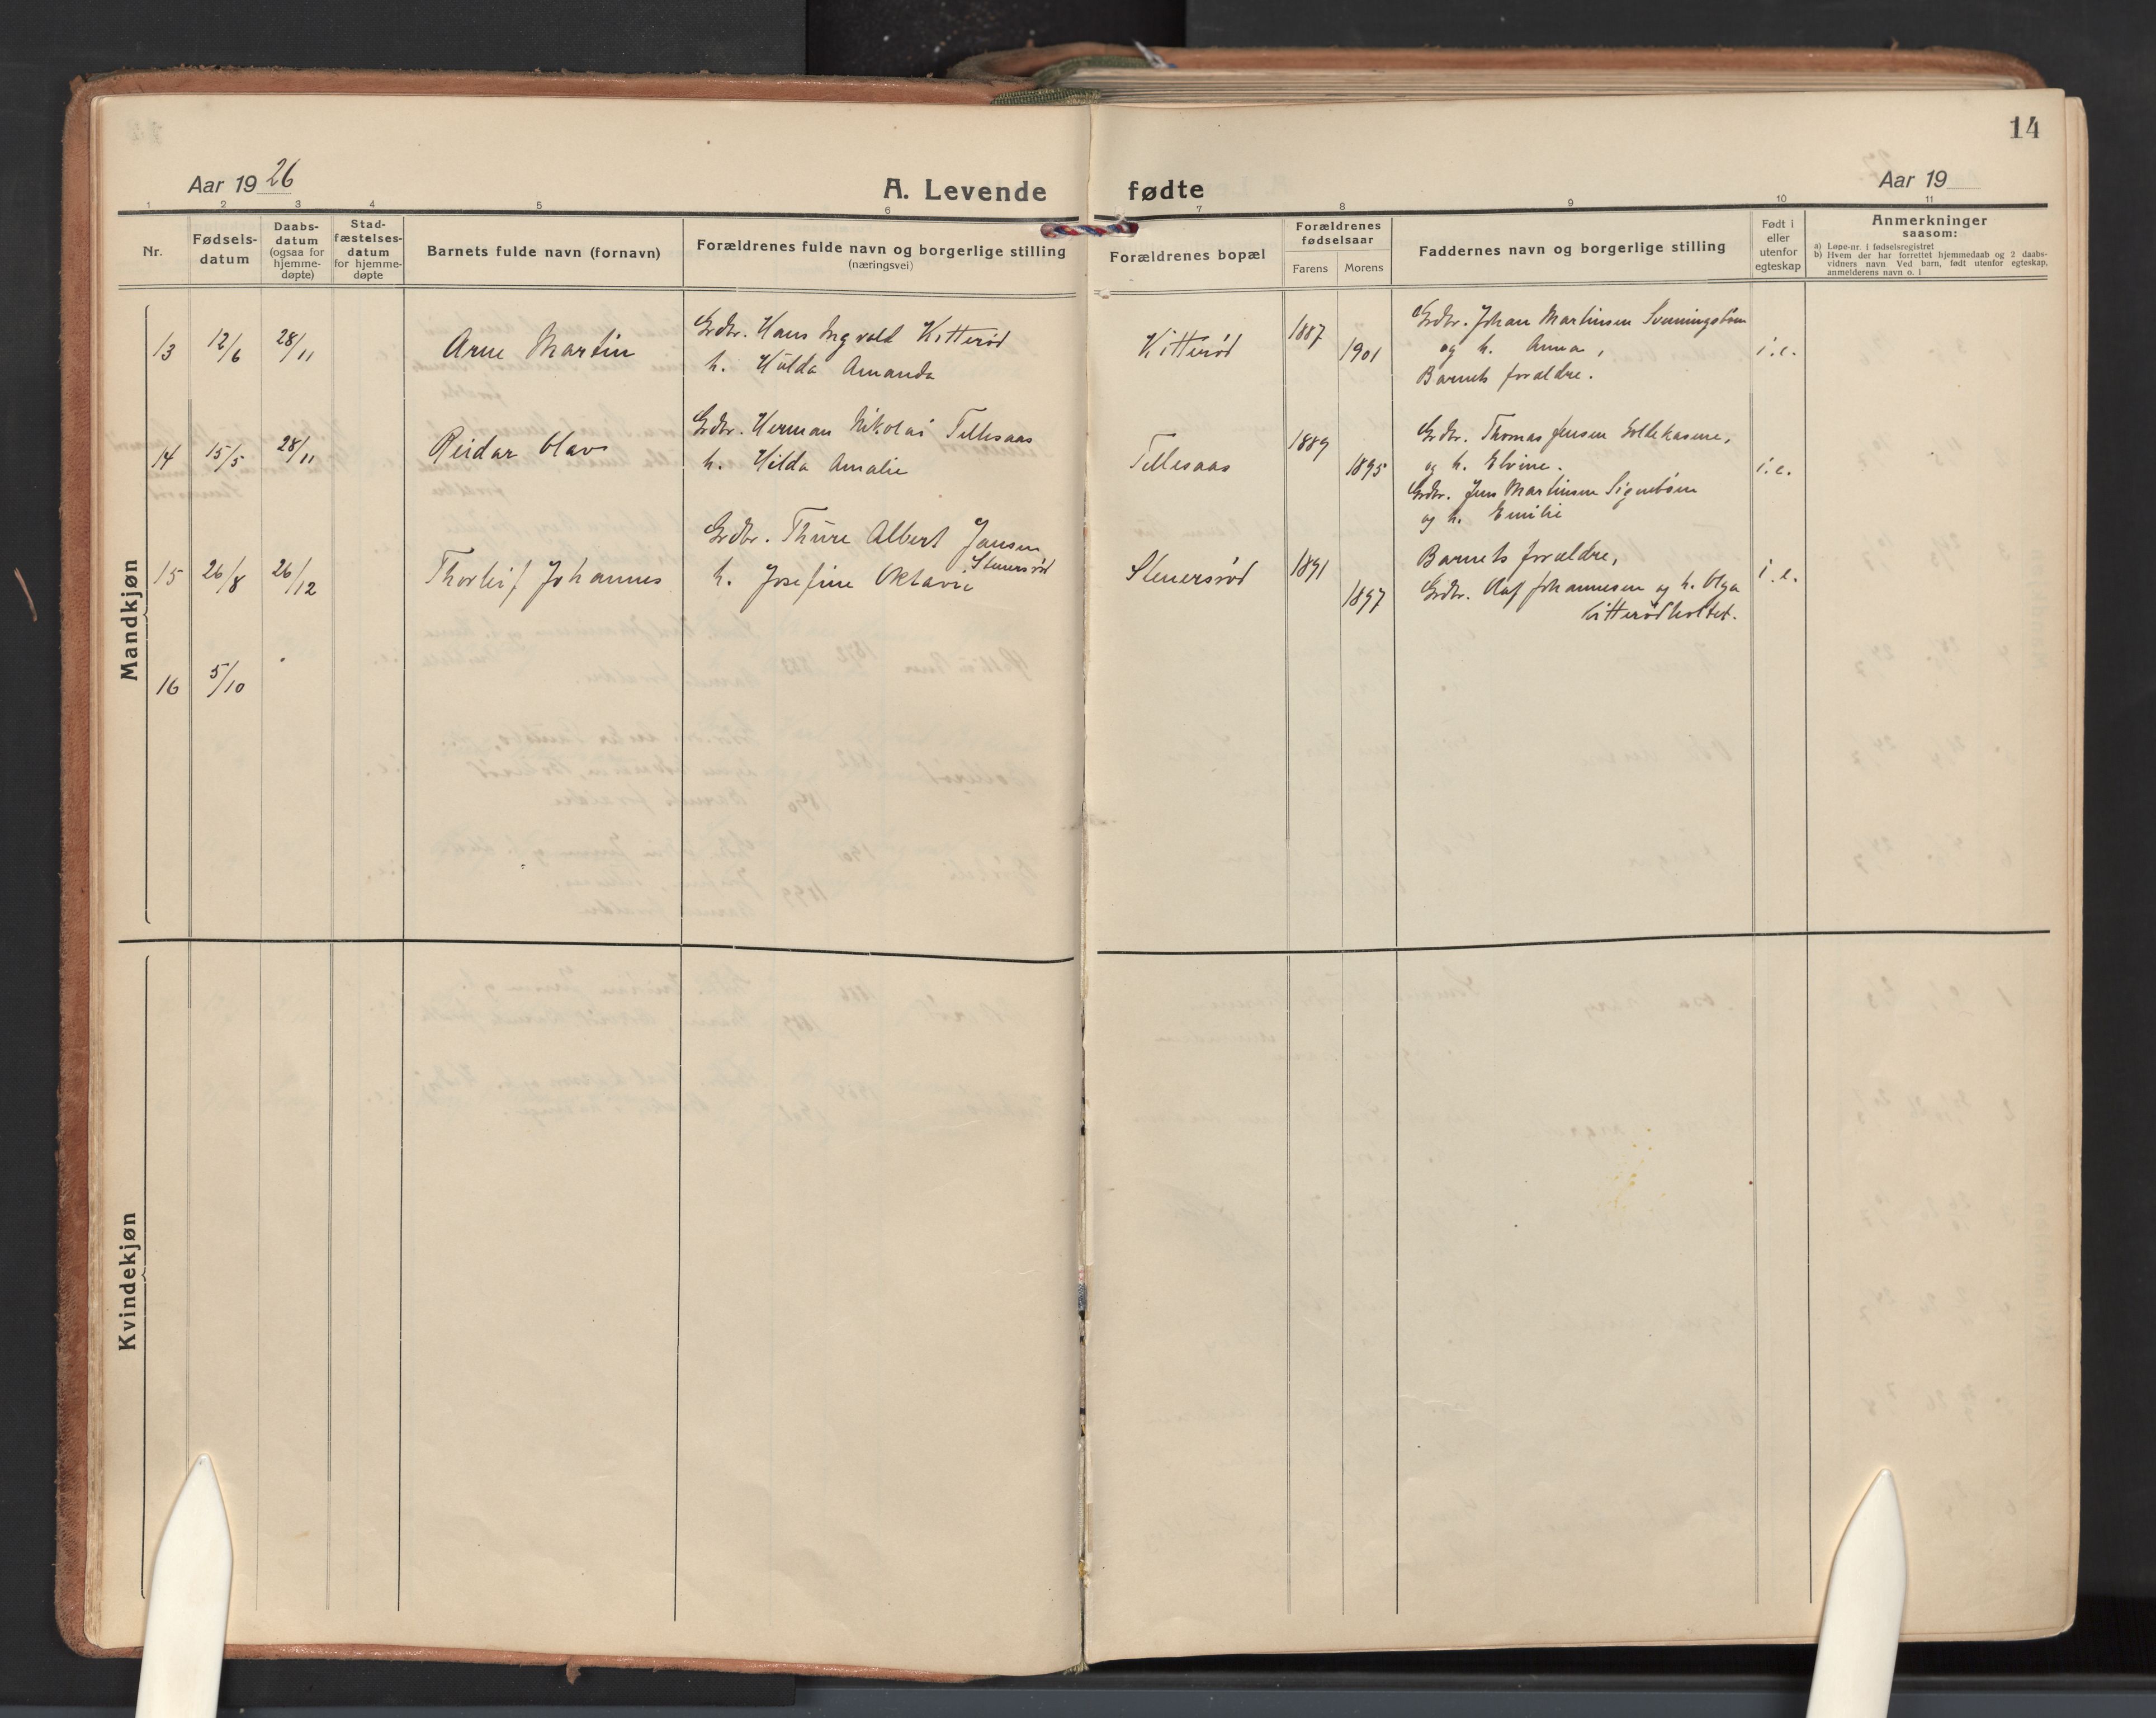 14
Aar 1926
A. Levende fødte
Aar 19
1 2 3 4 5 6 7 8 9 10 11
Nr.
Fødsels-
datum
Daabs-
datum
(ogsaa for
hjemme-
døpte)
Stad-
fæstelses-
datum
for hjemme-
døpte
Barnets fulde navn (fornavn)
Forældrenes fulde navn og borgerlige stilling
(næringsvei)
Forældrenes bopæl
Forældrenes
fødselsaar
Farens Morens
Faddernes navn og borgerlige stilling
Født i
eller
utenfor
egteskap
Anmerkninger
saasom:
a) Løpe-nr. i fødselsregistret
b) Hvem der har forrettet hjemmedaab og 2 daabs-
vidners navn Ved barn, født utenfor egteskap,
anmelderens navn o. l
Mandkjøn
13 12/6 28/11 Arne Martin
Grdbr. Hans Ingvald Kitterød
h. Hulda Amanda
Kitterød 1887 1901
Grdbr. Johan Martinsen
og h. Anna,
Barnets forældre.
i.e.
14 15/5 28/11 Reidar Olav
Grdbr. Herman Nikolai Tellesaas
h. Hilda Amalie
Tellesaas 1889 1895
Grdbr. Thomas Jensen
og h. Elvine.
Grdbr. Jens Martinsen
og h. Emilie
i.e.
15 26/8 26/12 Thorleif Johannes
Grdbr. Thure Albert Jansen
Stenersrød
h. Josefine Oktavie
Stenersrød 1891 1897
Barnets forældre,
Grdbr. Olaf Johannesen og h. Olga
Kitterødholtet.
i.e.
16 5/10
Kvindekjøn